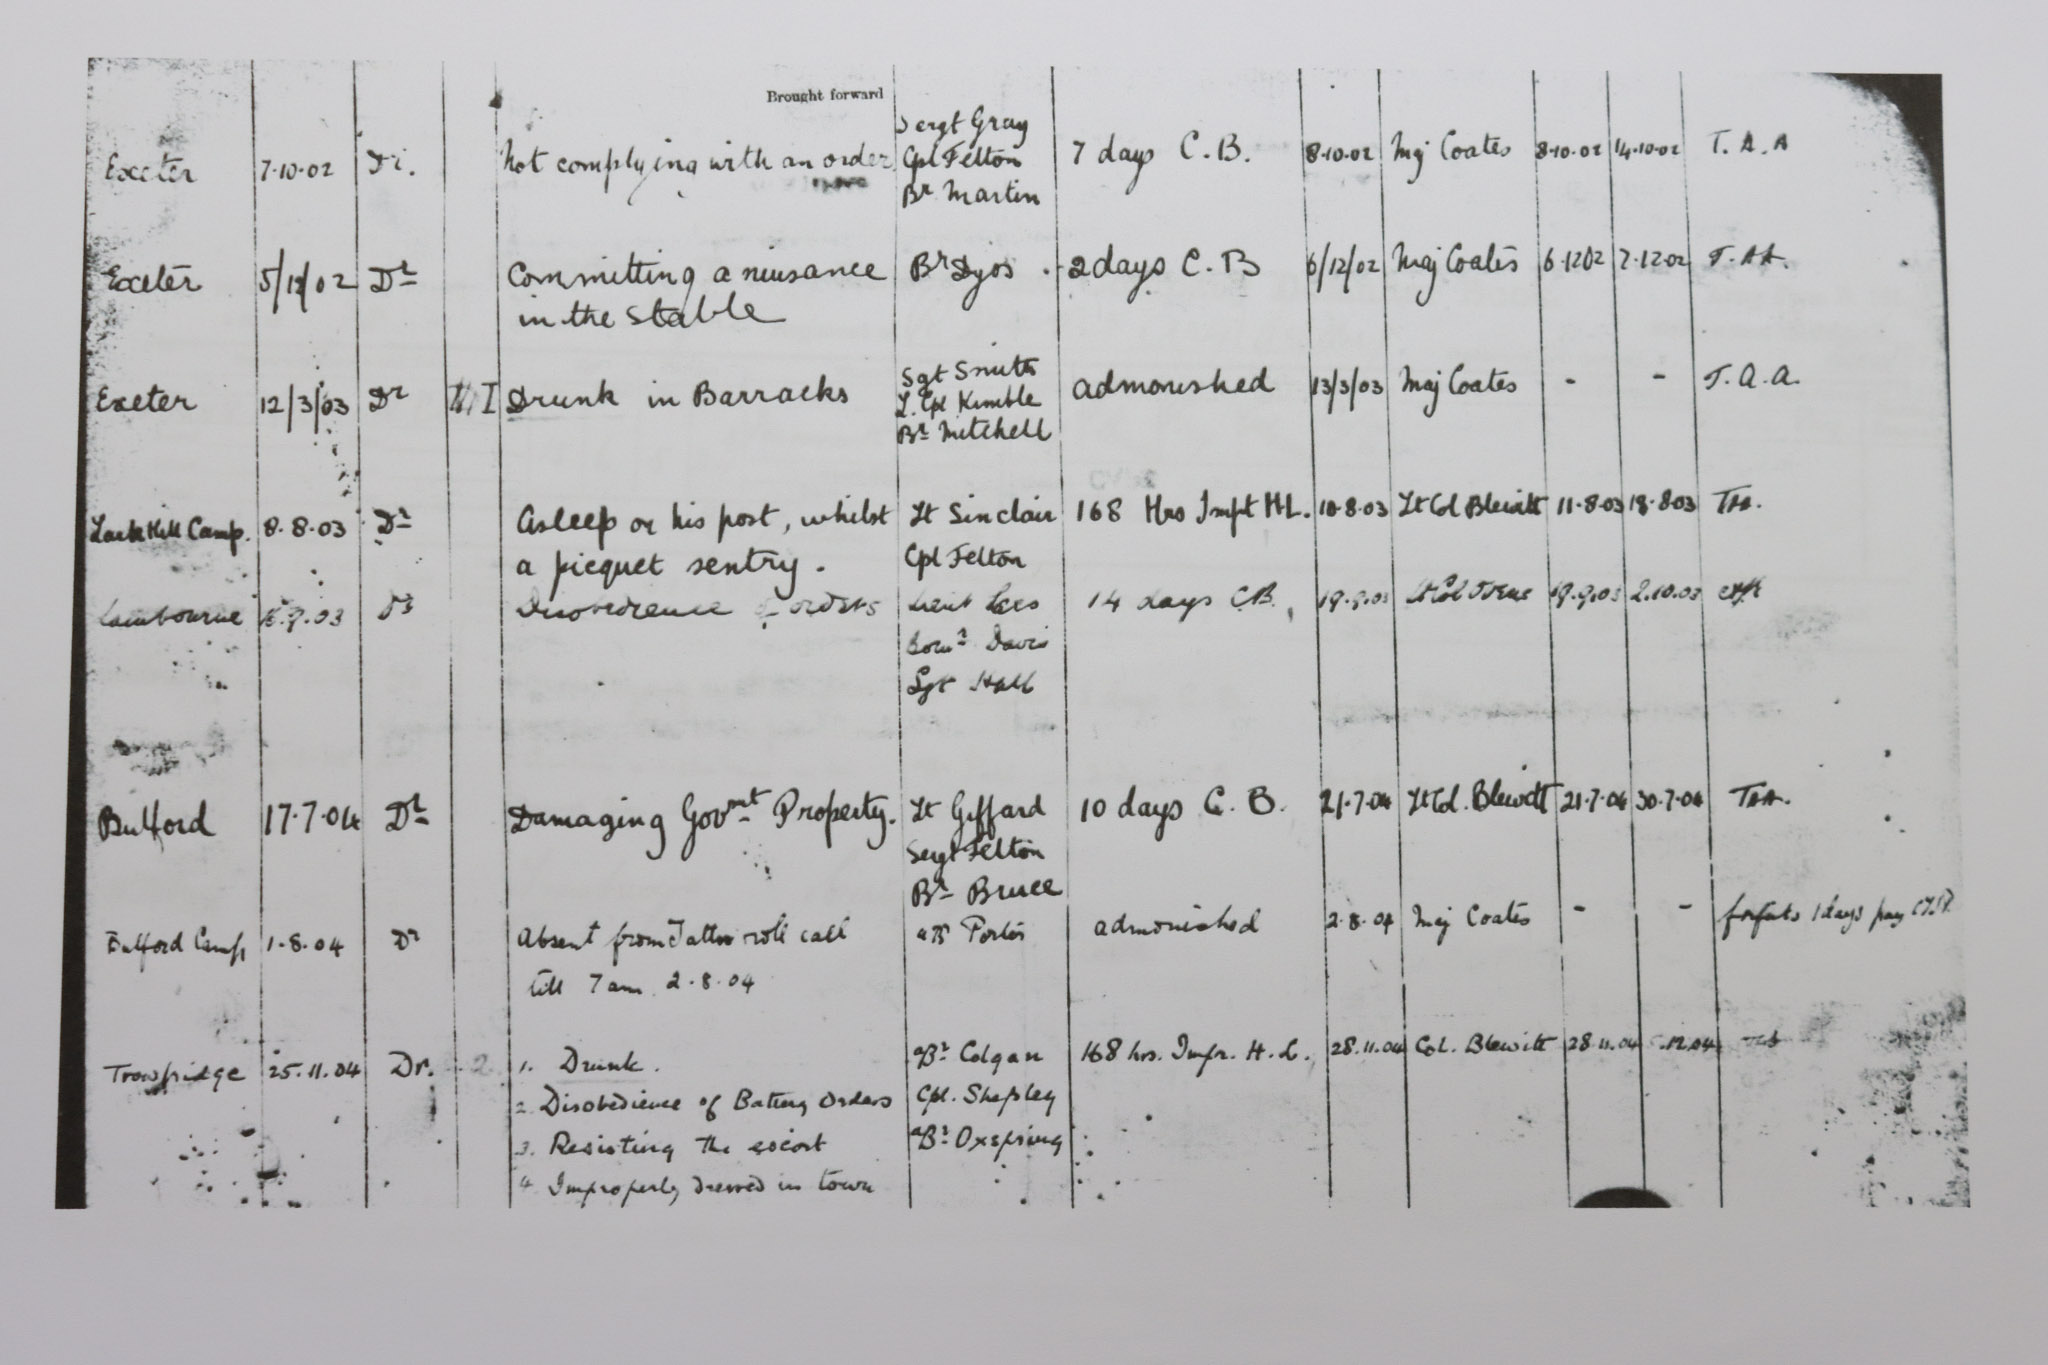 Brought forward
Sergt Gray
Exeter 7.10.02 Dr. Not complying with an order Cpl Felton 7 days C.B. 8.10.02 Maj Coates 8.10.02 14.10.02 T.A.A
Br Martin
Exeter 5/12/02 Dr Committing a nuisance Br Dyos 2 days C.B 6/12/02 Maj Coates 6.12.02 7.12.02 T.A.A.
in the stable
Sgt Smith
Exeter 12/3/03 Dr I Drunk in Barracks L. Cpl Kimble admonished 13/3/03 Maj Coates - - T.A.A.
Br Mitchell
Lark Hill Camp. 8.8.03 Dr Asleep on his post, whilst Lt Sinclair 168 Hrs Impt H.L. 10.8.03 Lt Col Blewitt 11.8.03 18.8.03 TAA.
a picquet sentry. Cpl Felton
Lambourne 9.03 Dr Disobedience of orders Lieut Lees 14 days C.B. 19.9.03 Lt Col 19.9.03 2.10.03
Bomr Davis
Sgt Hall
Bulford 17.7.04 Dr Damaging Govmt Property. Lt Giffard 10 days C.B. 21.7.04 Lt Col. Blewitt 21.7.04 30.7.04 TAA.
Sergt Felton
Br Bruce
Bulford Camp 1.8.04 Dr Absent from Tattoo roll call Porter admonished 2.8.04 Maj Coates - - forfeits 1 days pay
till 7 am 2.8.04
Trowbridge 25.11.04 Dr. 2 1. Drunk. aBr Colgan 168 hrs. Impr. H.L. 28.11.04 Col. Blewitt 28.11.04 .12.04
2. Disobedience of Battery Orders Cpl. Shepley
3. Resisting the escort aBr Oxspring
4. Improperly dressed in town